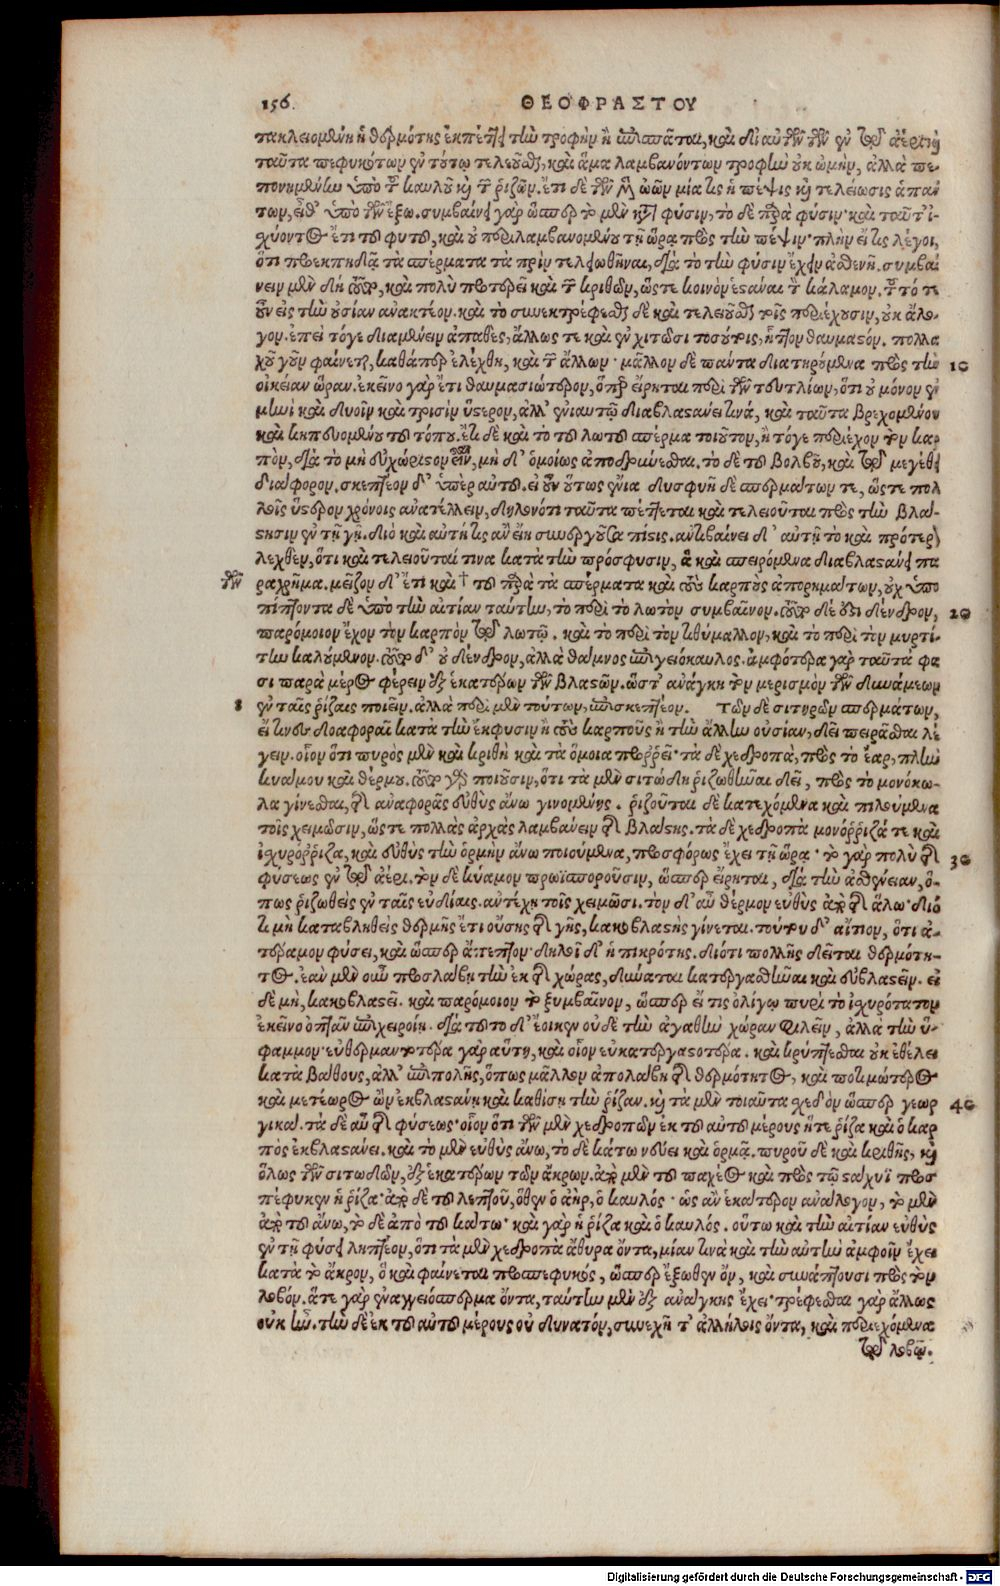 156. ΘΕΟΦΡΑΣΤΟΥ
τακλειομένη ἡ θερμότης ἐκπέττει τὴν τροφὴν ἣ ἐπισπᾶται, καὶ δι' αὐτῶν τῶν ἐν τῷ ἀέρι
ταῦτα πεφυκότων ἐν τούτῳ τελεοῦσθαι, καὶ ἅμα λαμβανόντων τροφὴν οὐκ ὠμὴν, ἀλλὰ πε-
πονημένην ὑπὸ τοῦ καυλοῦ καὶ τῶν ῥιζῶν. ἔτι δὲ τῶν μὲν ὠῶν μία τις ἡ πέψις καὶ τελείωσις ἁπάν
των, εἶθ' ὑπὸ τῶν ἔξω. συμβαίνει γὰρ ὥσπερ τὸ μὲν κατὰ φύσιν, τὸ δὲ παρὰ φύσιν· καὶ ταῦτ' ἰ-
σχύοντος ἔτι τοῦ φυτοῦ, καὶ οὐ περιλαμβανομένου τῇ ὥρᾳ πρὸς τὴν πέψιν· πλὴν εἴ τις λέγοι,
ὅτι προεκπηδᾷ τὰ σπέρματα τὰ πρὶν τελειωθῆναι, διὰ τὸ τὴν φύσιν ἔχειν ἀσθενῆ. συμβαί
νειν μὲν δὴ τοῦτο, καὶ πολὺ προτερεῖ καὶ τῶν κριθῶν, ὥστε κοινὸν ἐστάναι τὸν κάλαμον. τοῦτό τε
οὖν εἰς τὴν οὐσίαν ἀνακτέον. καὶ τὸ συνεκτρέφεσθαι δὲ καὶ τελειοῦσθαι τοῖς περιέχουσιν, οὐκ ἄλο-
γον. ἐπεὶ τόγε διαμένειν ἀπαθὲς, ἄλλως τε καὶ ἐν χιτῶσι τοσούτοις, ἧττον θαυμαστόν. πολλα
χοῦ γοῦν φαίνεται, καθάπερ ἐλέχθη, καὶ τῶν ἄλλων· μᾶλλον δὲ πάντα διατηρούμενα πρὸς τὴν 10
οἰκείαν ὥραν. ἐκεῖνο γὰρ ἔτι θαυμασιώτερον, ὅπερ εἴρηται περὶ τῶν τουτλίων, ὅτι οὐ μόνον ἐν
μηνὶ καὶ δυοῖν καὶ τρισὶν ὕστερον, ἀλλ' ἐνιαυτῷ διαβλαστάνει τινά, καὶ ταῦτα βρεχομένου
καὶ κηπευομένου τοῦ τόπου. ἔτι δὲ καὶ τὸ τοῦ λωτοῦ σπέρμα τοιοῦτον, ἢ τόγε περιέχον τὸν καρ
πὸν, διὰ τὸ μὴ εὐχώριστον εἶναι, μὴ δ' ὁμοίως ἀποκρίνεσθαι. τὸ δὲ τοῦ βολβοῦ, καὶ τῷ μεγέθει
διάφορον. σκεπτέον δ' ὑπὲρ αὐτοῦ. εἰ οὖν οὕτως ἔνια δυσφυῆ δὲ σπερμάτων τε, ὥστε πολ
λοῖς ὕστερον χρόνοις ἀνατέλλειν, δηλονότι ταῦτα πέττεται καὶ τελειοῦται πρὸς τὴν βλά-
στησιν ἐν τῇ γῇ. διὸ καὶ αὐτή τις ἂν εἴη συνεργοῦσα πίστις. ἀντιβαίνει δ' αὐτῇ τὸ καὶ πρότερον
λεχθὲν, ὅτι καὶ τελειοῦταί τινα κατὰ τὴν πρόσφυσιν, ἃ καὶ σπειρόμενα διαβλαστάνει πα
τῶν ραχρῆμα. μεῖζον δ' ἔτι καὶ † τοῦ παρὰ τὰ σπέρματα καὶ τοὺς καρποὺς ἀπορημάτων, οὐχ ὑπο
πίπτοντα δὲ ὑπὸ τὴν αἰτίαν ταύτην, τὸ περὶ τὸ λωτὸν συμβαῖνον. τοῦτο δέ ἐστι δένδρον, 20
παρόμοιον ἔχον τὸν καρπὸν τῷ λωτῷ. καὶ τὸ περὶ τὸν τιθύμαλλον, καὶ τὸ περὶ τὸν μυρτί-
την καλούμενον. τοῦτο δ' οὐ δένδρον, ἀλλὰ θάμνος ἐπιγειόκαυλος. ἀμφότερα γὰρ ταῦτά φα
σι παρὰ μέρος φέρειν ἐξ ἑκατέρων τῶν βλαστῶν. ὥστ' ἀνάγκη τὸν μερισμὸν τῶν δυνάμεων
8 ἐν ταῖς ῥίζαις ποιεῖν. ἀλλὰ περὶ μὲν τούτων, ἐπισκεπτέον. Τῶν δὲ σιτηρῶν σπερμάτων,
εἴ τινες διαφοραὶ κατὰ τὴν ἔκφυσιν ἢ τοὺς καρποὺς ἢ τὴν ἄλλην οὐσίαν, δεῖ πειρᾶσθαι λέ
γειν. οἷον ὅτι πυρὸς μὲν καὶ κριθὴ καὶ τὰ ὅμοια πρωῒ· τὰ δὲ χεδροπὰ, πρὸς τὸ ἔαρ, πλὴν
κυάμου καὶ θέρμου. τοῦτο γὰρ ποιοῦσιν, ὅτι τὰ μὲν σιτώδη ῥιζωθῆναι δεῖ, πρὸς τὸ μονόκω-
λα γίνεσθαι, τῆς ἀναφορᾶς εὐθὺς ἄνω γινομένης. ῥιζοῦται δὲ κατεχόμενα καὶ πιλούμενα
τοῖς χειμῶσιν, ὥστε πολλὰς ἀρχὰς λαμβάνειν τῆς βλάστης. τὰ δὲ χεδροπὰ μονόῤῥιζά τε καὶ
ἰσχυρόῤῥιζα, καὶ εὐθὺς τὴν ὁρμὴν ἄνω ποιούμενα, προσφόρως ἔχει τῇ ὥρᾳ· τὸ γὰρ πολὺ τῆς 30
φύσεως ἐν τῷ ἀέρι. τὸν δὲ κύαμον πρωϊσποροῦσιν, ὥσπερ εἴρηται, διὰ τὴν ἀσθένειαν, ὅ-
πως ῥιζωθεὶς ἐν ταῖς εὐδίαις. ἀντέχῃ τοῖς χειμῶσι. τὸν δ' αὖ θέρμον εὐθὺς ἀπὸ τῆς ἅλω· διό
τι μὴ καταβληθεὶς θερμῆς ἔτι οὔσης τῆς γῆς, κακοβλαστὴς γίνεται. τούτου δ' αἴτιον, ὅτι ἀ-
τέραμον φύσει, καὶ ὥσπερ ἄπεπτον· δηλοῖ δ' ἡ πικρότης. διότι πολλῆς δεῖται θερμότη-
τος. ἐὰν μὲν οὖν προσλάβῃ τὴν ἐκ τῆς χώρας, δύναται κατεργασθῆναι καὶ εὐβλαστεῖν. εἰ
δὲ μὴ, κακοβλαστεῖ. καὶ παρόμοιον τὸ ξυμβαῖνον, ὥσπερ εἴ τις ὀλίγῳ πυρὶ τὸ ἰσχυρότατον
ἐκεῖνο ὀπτᾶν ἐπιχειροίη. διὰ τοῦτο δ' ἔοικεν οὐδὲ τὴν ἀγαθὴν χώραν φιλεῖν, ἀλλὰ τὴν ὕ-
φαμμον· εὐθερμαντοτέρα γὰρ αὕτη, καὶ οἷον εὐκατεργαστοτέρα. καὶ κρύπτεσθαι οὐκ ἐθέλει
κατὰ βάθους, ἀλλ' ἐπιπολῆς, ὅπως μᾶλλον ἀπολάβῃ τῆς θερμότητος, καὶ ποτιμώτερος
καὶ μετέωρος ὢν ἐκβλαστάνῃ καὶ καθίσῃ τὴν ῥίζαν. καὶ τὰ μὲν τοιαῦτα σχεδὸν ὥσπερ γεωρ 40
γικά. τὰ δὲ αὖ τῆς φύσεως· οἷον ὅτι τῶν μὲν χεδροπῶν ἐκ τοῦ αὐτοῦ μέρους ἥτε ῥίζα καὶ ὁ καρ
πὸς ἐκβλαστάνει. καὶ τὸ μὲν εὐθὺς ἄνω, τὸ δὲ κάτω νεύει καὶ ὁρμᾷ. πυροῦ δὲ καὶ κριθῆς, καὶ
ὅλως τῶν σιτωδῶν, ἐξ ἑκατέρων τῶν ἄκρων. ἀπὸ μὲν τοῦ παχέος καὶ πρὸς τῷ στάχυϊ προσ
πέφυκεν ἡ ῥίζα· ἀπὸ δὲ τοῦ λεπτοῦ, ὅθεν ὁ ἀὴρ, ὁ καυλός· ὡς ἂν ἑκάτερον ἀνάλογον, τὸ μὲν
ἀπὸ τοῦ ἄνω, τὸ δὲ ἀπὸ τοῦ κάτω· καὶ γὰρ ἡ ῥίζα καὶ ὁ καυλός. οὕτω καὶ τὴν αἰτίαν εὐθὺς
ἐν τῇ φύσει ληπτέον, ὅτι τὰ μὲν χεδροπὰ ἄθυρα ὄντα, μίαν τινὰ καὶ τὴν αὐτὴν ἀμφοῖν ἔχει
κατὰ τὸ ἄκρον, ὃ καὶ φαίνεται προσπεφυκὸς, ὥσπερ ἔξωθεν ὂν, καὶ συνάπτουσι πρὸς τὸν
λοβόν. ἅτε γὰρ ἐναγγειόσπερμα ὄντα, ταύτην μὲν ἐξ ἀνάγκης ἔχει· τρέφεσθαι γὰρ ἄλλως
οὐκ ἦν. τὴν δὲ ἐκ τοῦ αὐτοῦ μέρους οὐ δυνατόν, συνεχῆ τ' ἀλλήλοις ὄντα, καὶ περιεχόμενα
τῷ λοβῷ.
Digitalisierung gefördert durch die Deutsche Forschungsgemeinschaft - DFG